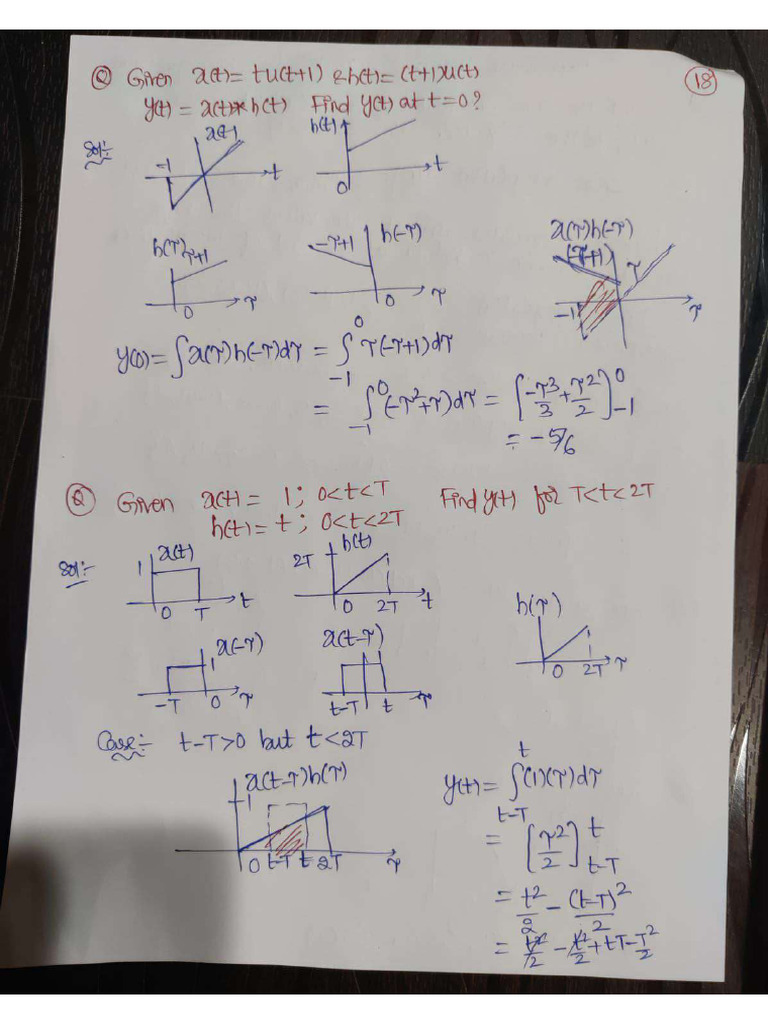 18
Q Given x(t) = tu(t+1) & h(t) = (t+1)u(t)
y(t) = x(t)*h(t) Find y(t) at t=0?
Sol:-
x(t) -1 t
h(t) 0 t
h(τ) τ+1 0 τ
-τ+1 h(-τ) 0 τ
x(τ)h(-τ) (-τ+1) τ -1 τ
y(0) = ∫x(τ)h(-τ)dτ = ∫_{-1}^{0} τ(-τ+1)dτ
= ∫_{-1}^{0} (-τ²+τ)dτ = [-τ³/3 + τ²/2]_{-1}^{0}
= -5/6
Q Given x(t) = 1; 0<t<T Find y(t) for T<t<2T
h(t) = t; 0<t<2T
Sol:-
1 x(t) 0 T t
2T h(t) 0 2T t
h(τ) 0 2T τ
x(-τ) 1 -T 0 τ
x(t-τ) t-T t τ
Case:- t-T>0 but t<2T
x(t-τ)h(τ) 1 0 t-T t 2T τ
y(t) = ∫_{t-T}^{t} (1)(τ)dτ
= [τ²/2]_{t-T}^{t}
= t²/2 - (t-T)²/2
= t²/2 - t²/2 + tT - T²/2